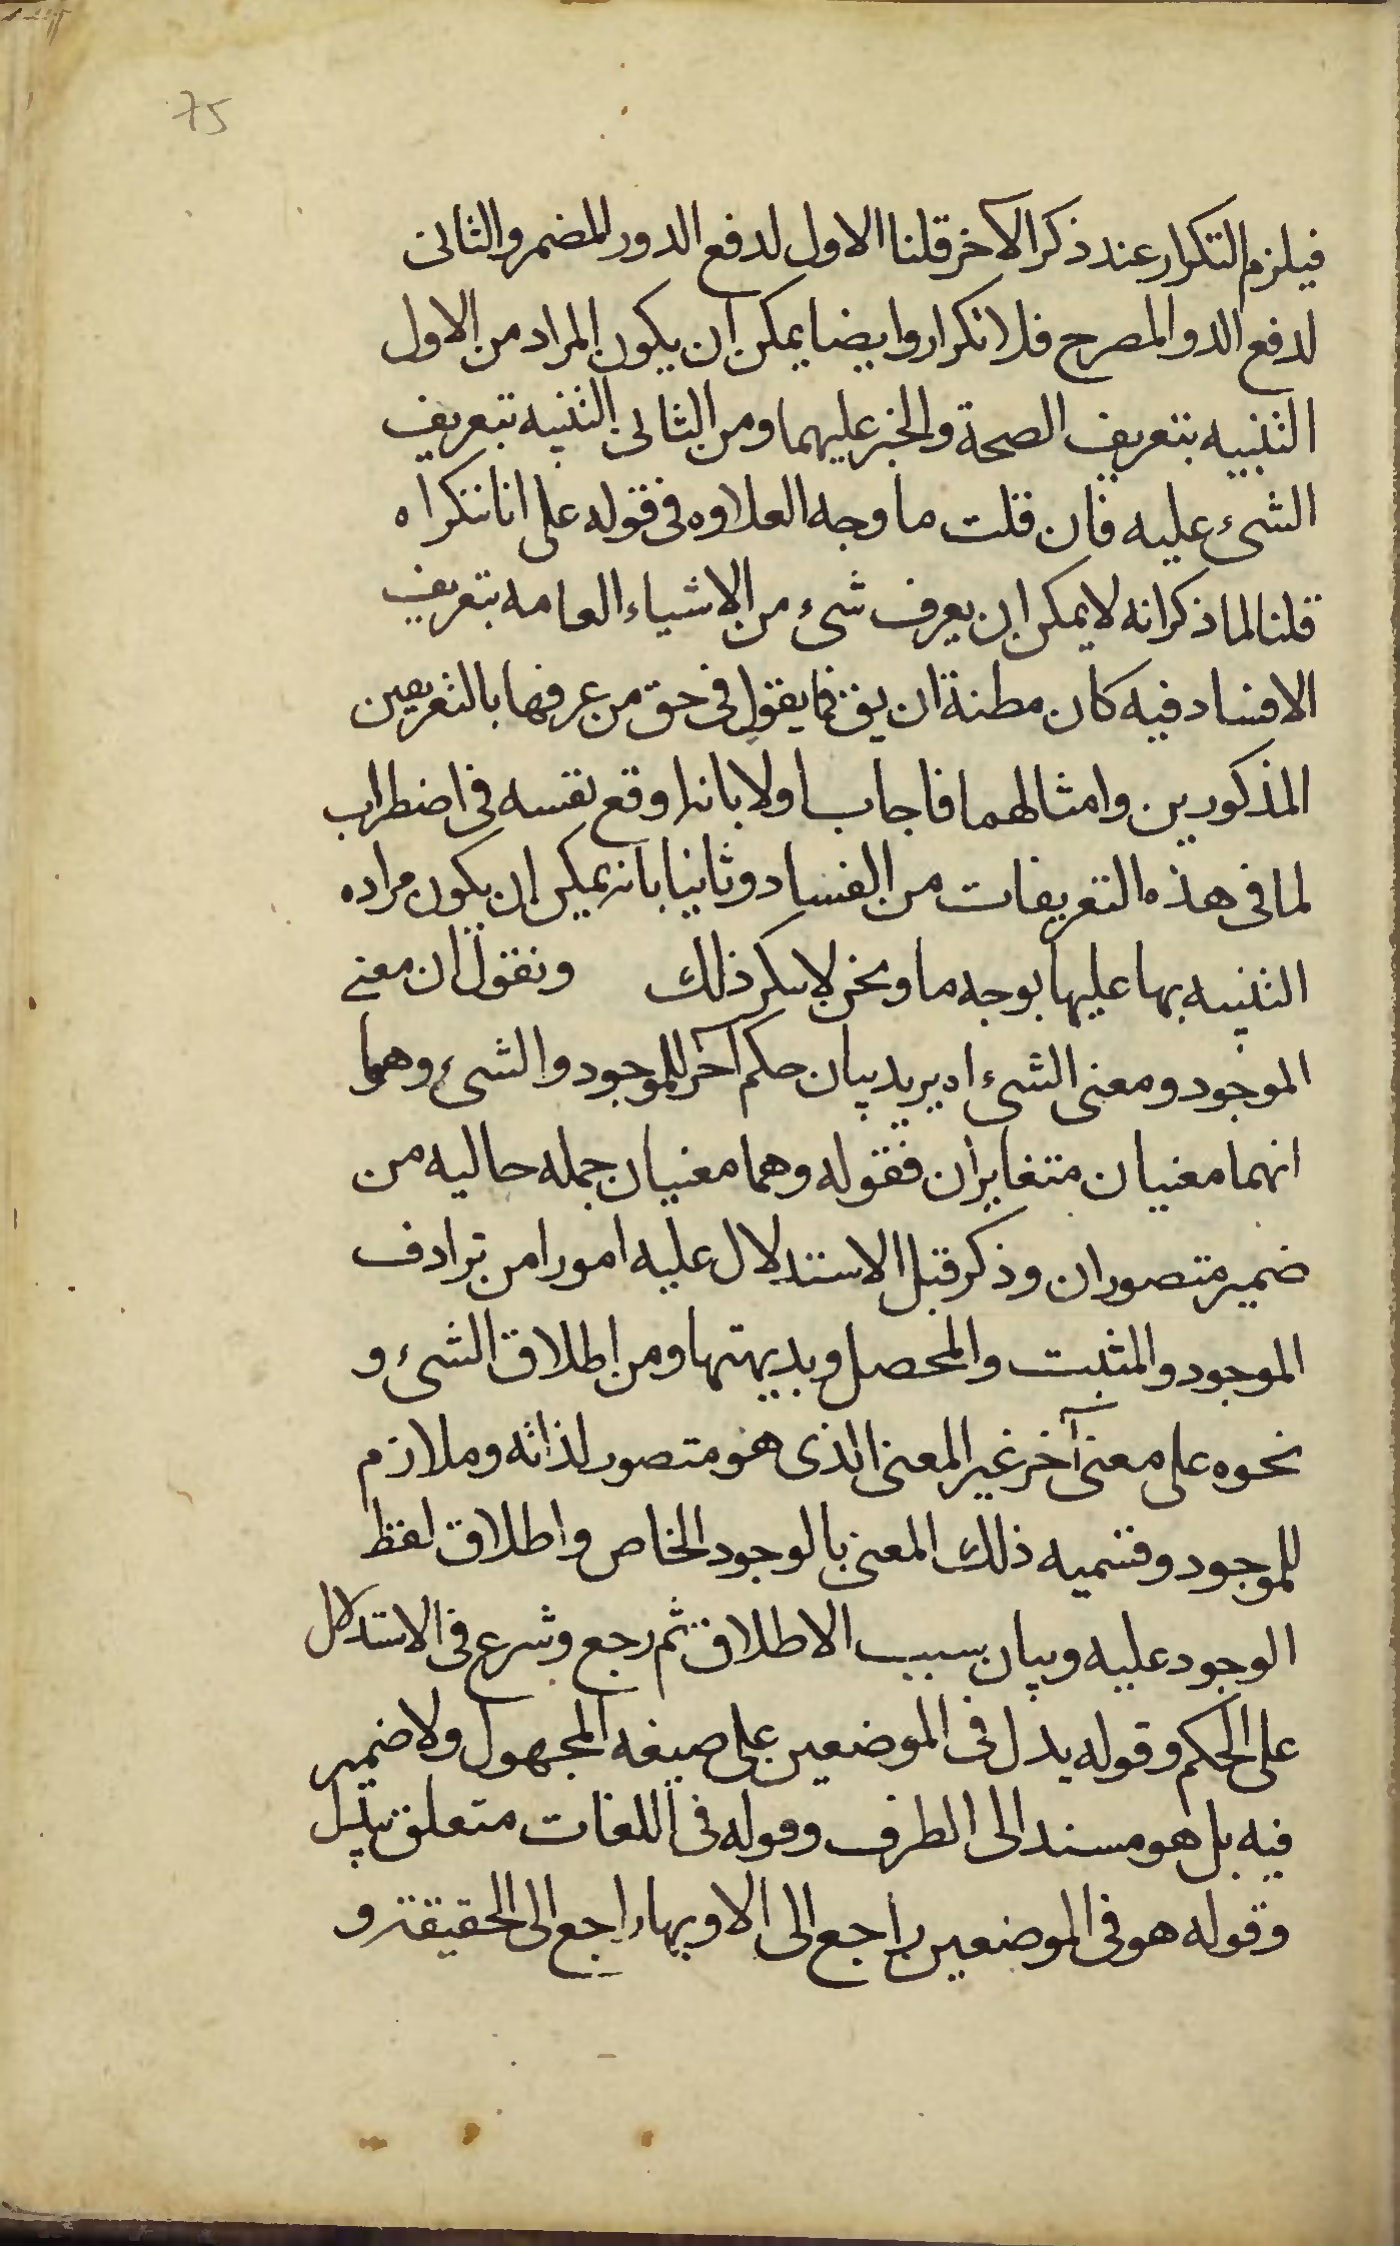 75
فيلزم التكرار عند ذكر الآخر قلنا الاول لدفع الدور المضمر والثانى
لدفع الدو المصرح فلا تكرار وايضا يمكن ان يكون المراد من الاول
التنبيه بتعريف الصحة والخبر عليهما ومن الثانى التنبيه بتعريف
الشىء عليه فان قلت ما وجه العلاوه فى قوله على انا ننكراه
قلنا لما ذكر انه لا يمكن ان يعرف شىء من الاشياء العامه بتعريف
الافساد فيه كان مظنة ان يق فما يقول فى حق من عرفها بالتعريفين
المذكورين وامثالهما فاجاب اولا بانه اوقع نفسه فى اضطراب
لما فى هذه التعريفات من الفساد وثانيا بانه يمكن ان يكون مراده
التنبيه بها عليها بوجه ما ونحن لا ننكر ذلك ونقول ان معنى
الموجود ومعنى الشىء اه يريد بيان حكم آخر للموجود والشىء وهو
انهما معنيان متغايران فقوله وهما معنيان جمله حاليه من
ضمير متصوران وذكر قبل الاستدلال عليه امورا من ترادف
الموجود والمثبت والمحصل وبديهتها ومن اطلاق الشىء و
نحوه على معنى آخر غير المعنى الذى هو متصور لذاته وملازم
للموجود وتسميه ذلك المعنى بالوجود الخاص واطلاق لفظ
الوجود عليه وبيان سبب الاطلاق ثم رجع وشرع فى الاستدلال
على الحكم وقوله يدل فى الموضعين على صيغه المجهول ولا ضمير
فيه بل هو مسند الى الظرف وقوله فى اللغات متعلق بيدل
وقوله هو فى الموضعين راجع الى الا وبها راجع الى الحقيقة و